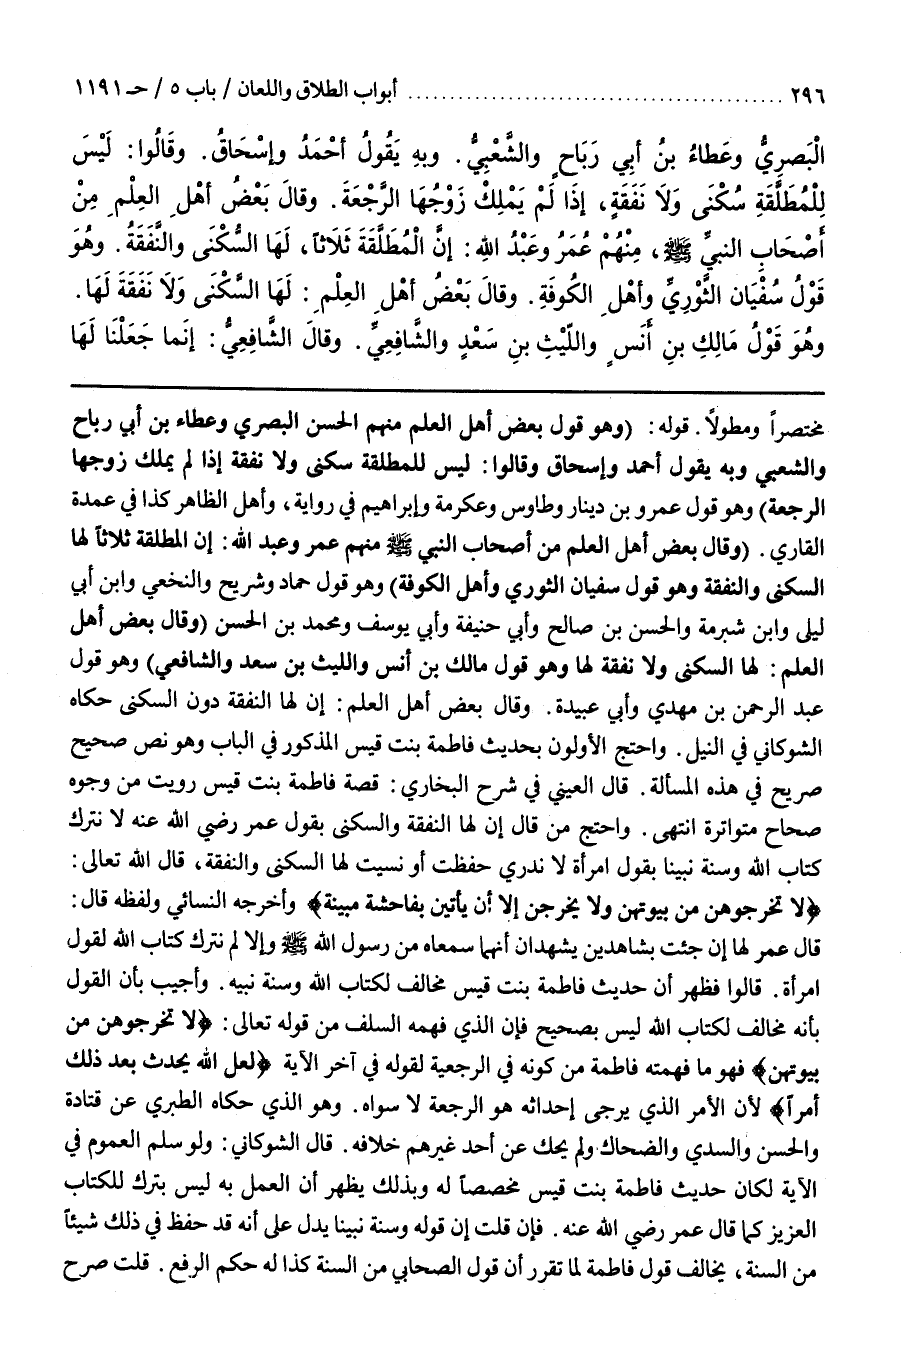 ٢٩٦ ................................................ أبواب الطلاق واللعان / باب ٥ / حـ ١١٩١
الْبَصرِيُّ وعَطاءُ بنُ أبي رَبَاحٍ والشَّعْبِيُّ. وبهِ يَقُولُ أحْمَدُ وإسْحَاقُ. وقَالُوا: لَيْسَ
لِلْمُطَلَّقَةِ سُكْنَى وَلاَ نَفَقَةٍ، إذَا لَمْ يَمْلِكْ زَوْجُهَا الرَّجْعَةَ. وقالَ بَعْضُ أهْلِ العِلْمِ مِنْ
أَصْحَابِ النبيِّ ﷺ، مِنْهُمْ عُمَرُ وعَبْدُ اللهِ: إنَّ الْمُطَلَّقَةَ ثَلاَثاً، لَهَا السُّكْنَى والنَّفَقَةُ. وهُوَ
قَوْلُ سُفْيَان الثَّوْرِيِّ وأهْلِ الكُوفَةِ. وقالَ بَعْضُ أهْلِ العِلْمِ: لَهَا السَّكْنَى وَلَا نَفَقَةَ لَهَا.
وهُوَ قَوْلُ مَالِكِ بنِ أَنَسٍ واللّيْثِ بنِ سَعْدٍ والشَّافِعِيِّ. وقالَ الشَّافِعِيُّ: إنَما جَعَلْنَا لَهَا
مختصراً ومطولاً. قوله: (وهو قول بعض أهل العلم منهم الحسن البصري وعطاء بن أبي رباح
والشعبي وبه يقول أحمد وإسحاق وقالوا: ليس للمطلقة سكنى ولا نفقة إذا لم يملك زوجها
الرجعة) وهو قول عمرو بن دينار وطاوس وعكرمة وإبراهيم في رواية، وأهل الظاهر كذا في عمدة
القاري. (وقال بعض أهل العلم من أصحاب النبي ﷺ منهم عمر وعبد الله: إن المطلقة ثلاثاً لها
السكنى والنفقة وهو قول سفيان الثوري وأهل الكوفة) وهو قول حماد وشريح والنخعي وابن أبي
ليلى وابن شبرمة والحسن بن صالح وأبي حنيفة وأبي يوسف ومحمد بن الحسن (وقال بعض أهل
العلم: لها السكنى ولا نفقة لها وهو قول مالك بن أنس والليث بن سعد والشافعي) وهو قول
عبد الرحمن بن مهدي وأبي عبيدة. وقال بعض أهل العلم: إن لها النفقة دون السكنى حكاه
الشوكاني في النيل. واحتج الأولون بحديث فاطمة بنت قيس المذكور في الباب وهو نص صحيح
صريح في هذه المسألة. قال العيني في شرح البخاري: قصة فاطمة بنت قيس رويت من وجوه
صحاح متواترة انتهى. واحتج من قال إن لها النفقة والسكنى بقول عمر رضي الله عنه لا نترك
كتاب الله وسنة نبينا بقول امرأة لا ندري حفظت أو نسيت لها السكنى والنفقة، قال الله تعالى:
﴿لا تخرجوهن من بيوتهن ولا يخرجن إلا أن يأتين بفاحشة مبينة﴾ وأخرجه النسائي ولفظه قال:
قال عمر لها إن جئت بشاهدين يشهدان أنهما سمعاه من رسول الله ﷺ وإلا لم نترك كتاب الله لقول
امرأة. قالوا فظهر أن حديث فاطمة بنت قيس مخالف لكتاب الله وسنة نبيه. وأجيب بأن القول
بأنه مخالف لكتاب الله ليس بصحيح فإن الذي فهمه السلف من قوله تعالى: ﴿لا تخرجوهن من
بيوتهن﴾ فهو ما فهمته فاطمة من كونه في الرجعية لقوله في آخر الآية ﴿لعل الله يحدث بعد ذلك
أمراً﴾ لأن الأمر الذي يرجى إحداثه هو الرجعة لا سواه. وهو الذي حكاه الطبري عن قتادة
والحسن والسدي والضحاك ولم يحك عن أحد غيرهم خلافه. قال الشوكاني: ولو سلم العموم في
الآية لكان حديث فاطمة بنت قيس مخصصاً له وبذلك يظهر أن العمل به ليس بترك للكتاب
العزيز كما قال عمر رضي الله عنه. فإن قلت إن قوله وسنة نبينا يدل على أنه قد حفظ في ذلك شيئاً
من السنة، يخالف قول فاطمة لما تقرر أن قول الصحابي من السنة كذا له حكم الرفع. قلت صرح